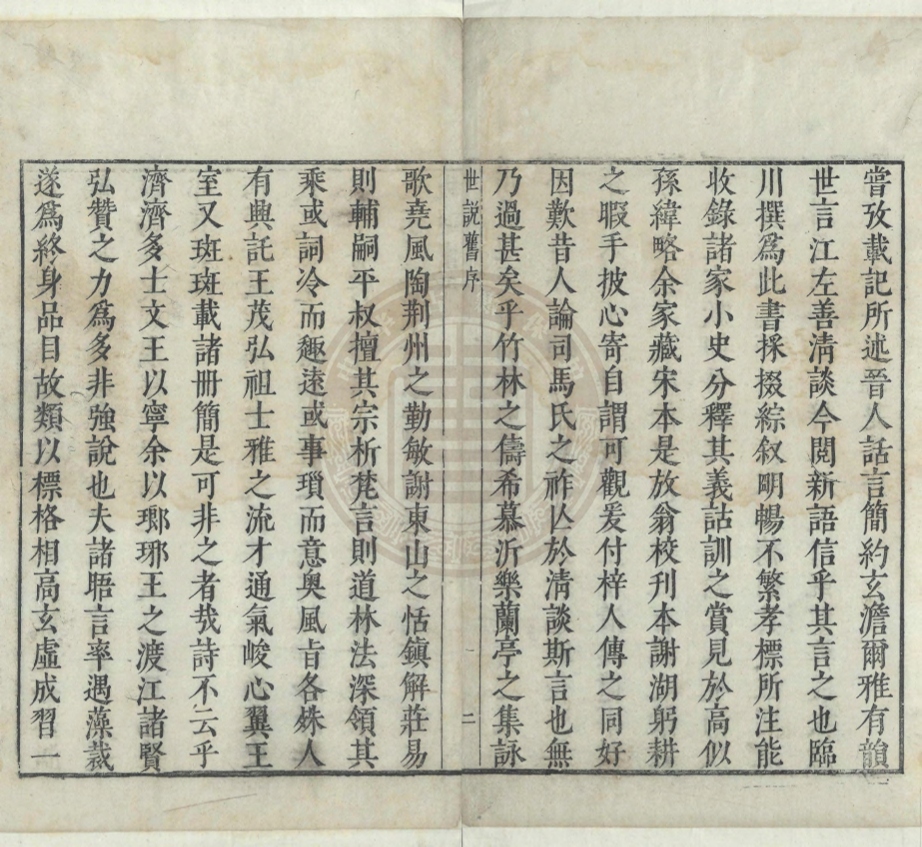 嘗攷載記所述晉人話言簡約玄澹爾雅有韻
世言江左善淸談今閱新語信乎其言之也臨
川撰爲此書採掇綜叙明暢不繁孝標所注能
收錄諸家小史分釋其義詁訓之賞見於高似
孫緯略余家藏宋本是放翁校刊本謝湖躬耕
之暇手披心寄自謂可觀爰付梓人傳之同好
因歎昔人論司馬氏之祚亾於淸談斯言也無
乃過甚矣乎竹林之儔希慕沂樂蘭亭之集詠
世說舊序
二
歌堯風陶荆州之勤敏謝東山之恬鎮解莊易
則輔嗣平叔擅其宗析梵言則道林法深領其
乘或詞冷而趣遠或事瑣而意奥風㫖各殊人
有興託王茂弘祖士雅之流才通氣峻心翼王
室又斑斑載諸册簡是可非之者哉詩不云乎
濟濟多士文王以寧余以瑯琊王之渡江諸賢
弘贊之力爲多非強說也夫諸晤言率遇藻裁
遂爲終身品目故類以標格相高玄虛成習一